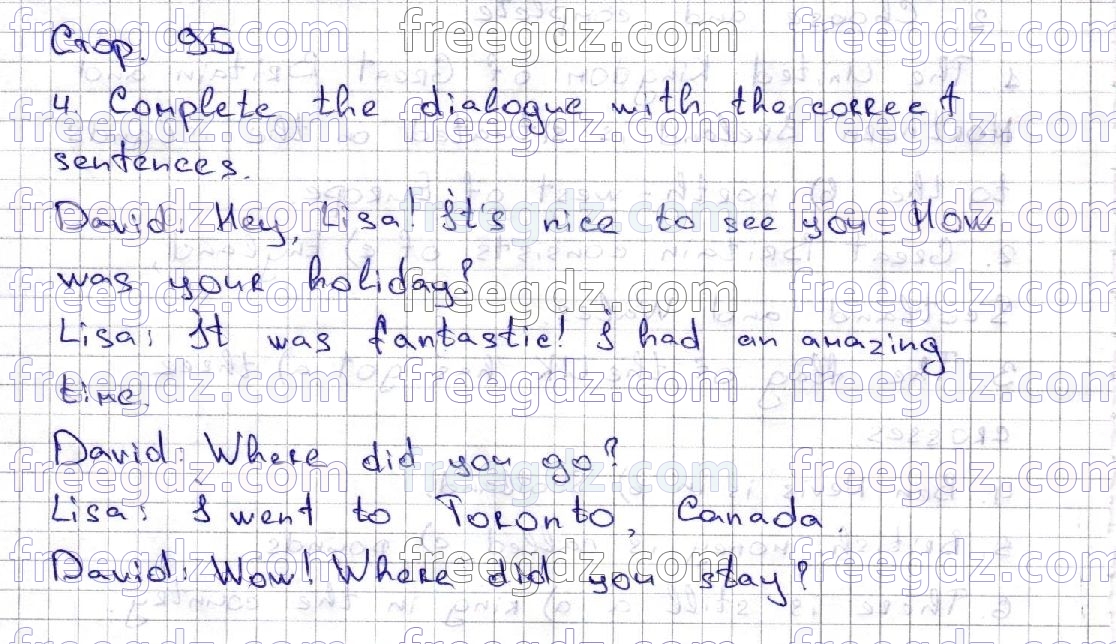 Стор. 95
4. Complete the dialogue with the correct
sentences.
David: Hey, Lisa! It's nice to see you. How
was your holiday?
Lisa: It was fantastic! I had an amazing
time.
David: Where did you go?
Lisa: I went to Toronto, Canada.
David: Wow! Where did you stay?
freegdz.com